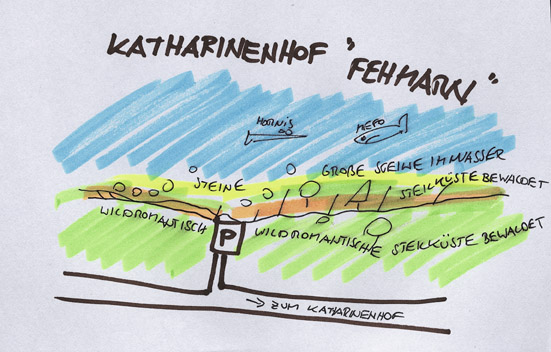 KATHARINENHOF "FEHMARN"
HORNIS
MEFO
GROßE STEINE IM WASSER
STEINE
STEILKÜSTE BEWALDET
WILDROMANTISCH
P
WILDROMANTISCHE STEILKÜSTE BEWALDET
→ ZUM KATHARINENHOF